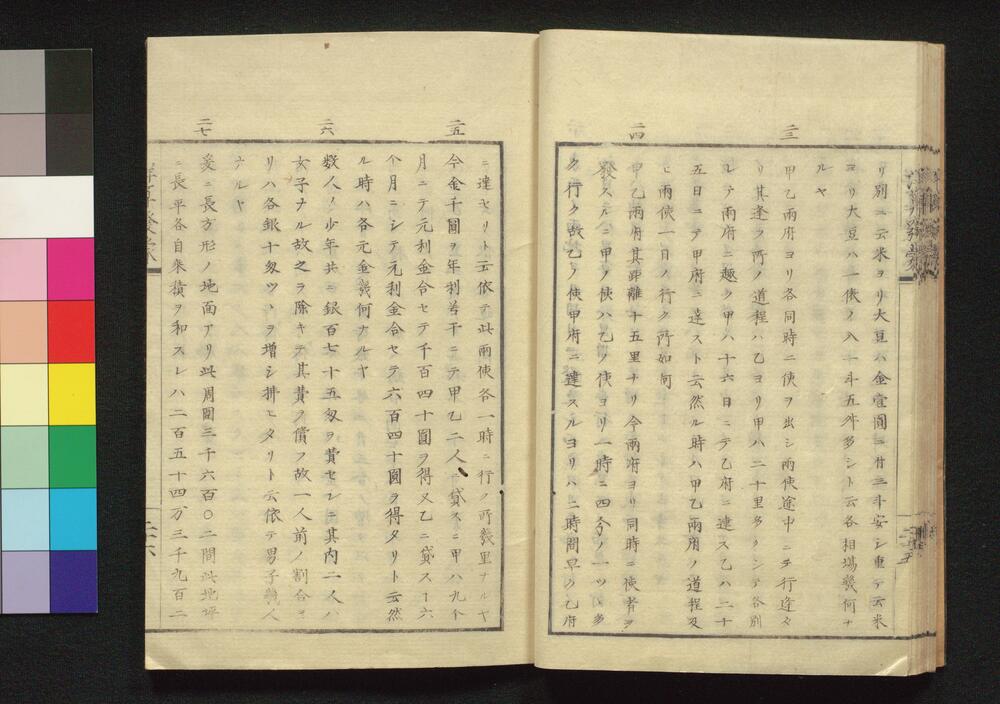 リ別ニ云米ヨリ大豆ハ金壹圓ニ廿三斗安シ重テ云米
ヨリ大豆ハ一俵ノ入一斗五升多シト云各相場幾何ナ
ルヤ
二三
甲乙兩府ヨリ各同時ニ使ヲ出シ兩使途中ニテ行逢タ
リ其逢フ所ノ道程ハ乙ヨリ甲ハ二十里多クシテ各別
レテ兩府ニ趣ク甲ハ十六日ニテ乙府ニ達ス乙ハ二十
五日ニテ甲府ニ達スト云然ル時ハ甲乙兩府ノ道程及
ヒ兩使一日ノ行ク所如何
二四
甲乙兩府其距離十五里ナリ今兩府ヨリ同時ニ使者ヲ
發スルニ甲ノ使ハ乙ノ使ヨリ一時ニ四分ノ一ツヽ多
ク行ク故乙ノ使甲府ニ達スルヨリハ二時間早ク乙府
ニ達セリト云依テ此兩使各一時ニ行ノ所幾里ナルヤ
二五
今金千圓ヲ年利若干ニテ甲乙二人ニ貸スニ甲ハ九个
月ニテ元利金合セテ千百四十圓ヲ得又乙ニ貸ス十六
个月ニシテ元利金合セテ六百四十圓ヲ得タリト云然
ル時ハ各元金幾何ナルヤ
二六
數人ノ少年共ニ銀百七十五匁ヲ費セシニ其内二人ハ
女子ナル故之ヲ除キテ其費ヲ償フ故一人前ノ割合ヨ
リハ各銀十匁ツヽヲ增シ拂ヒタリト云依テ男子幾人
ナルヤ
二七
爰ニ長方形ノ地面アリ此周圍三千六百〇二間此地坪
ニ長平各自乘積ヲ和スレハ二百五十四万三千九百二
二十六